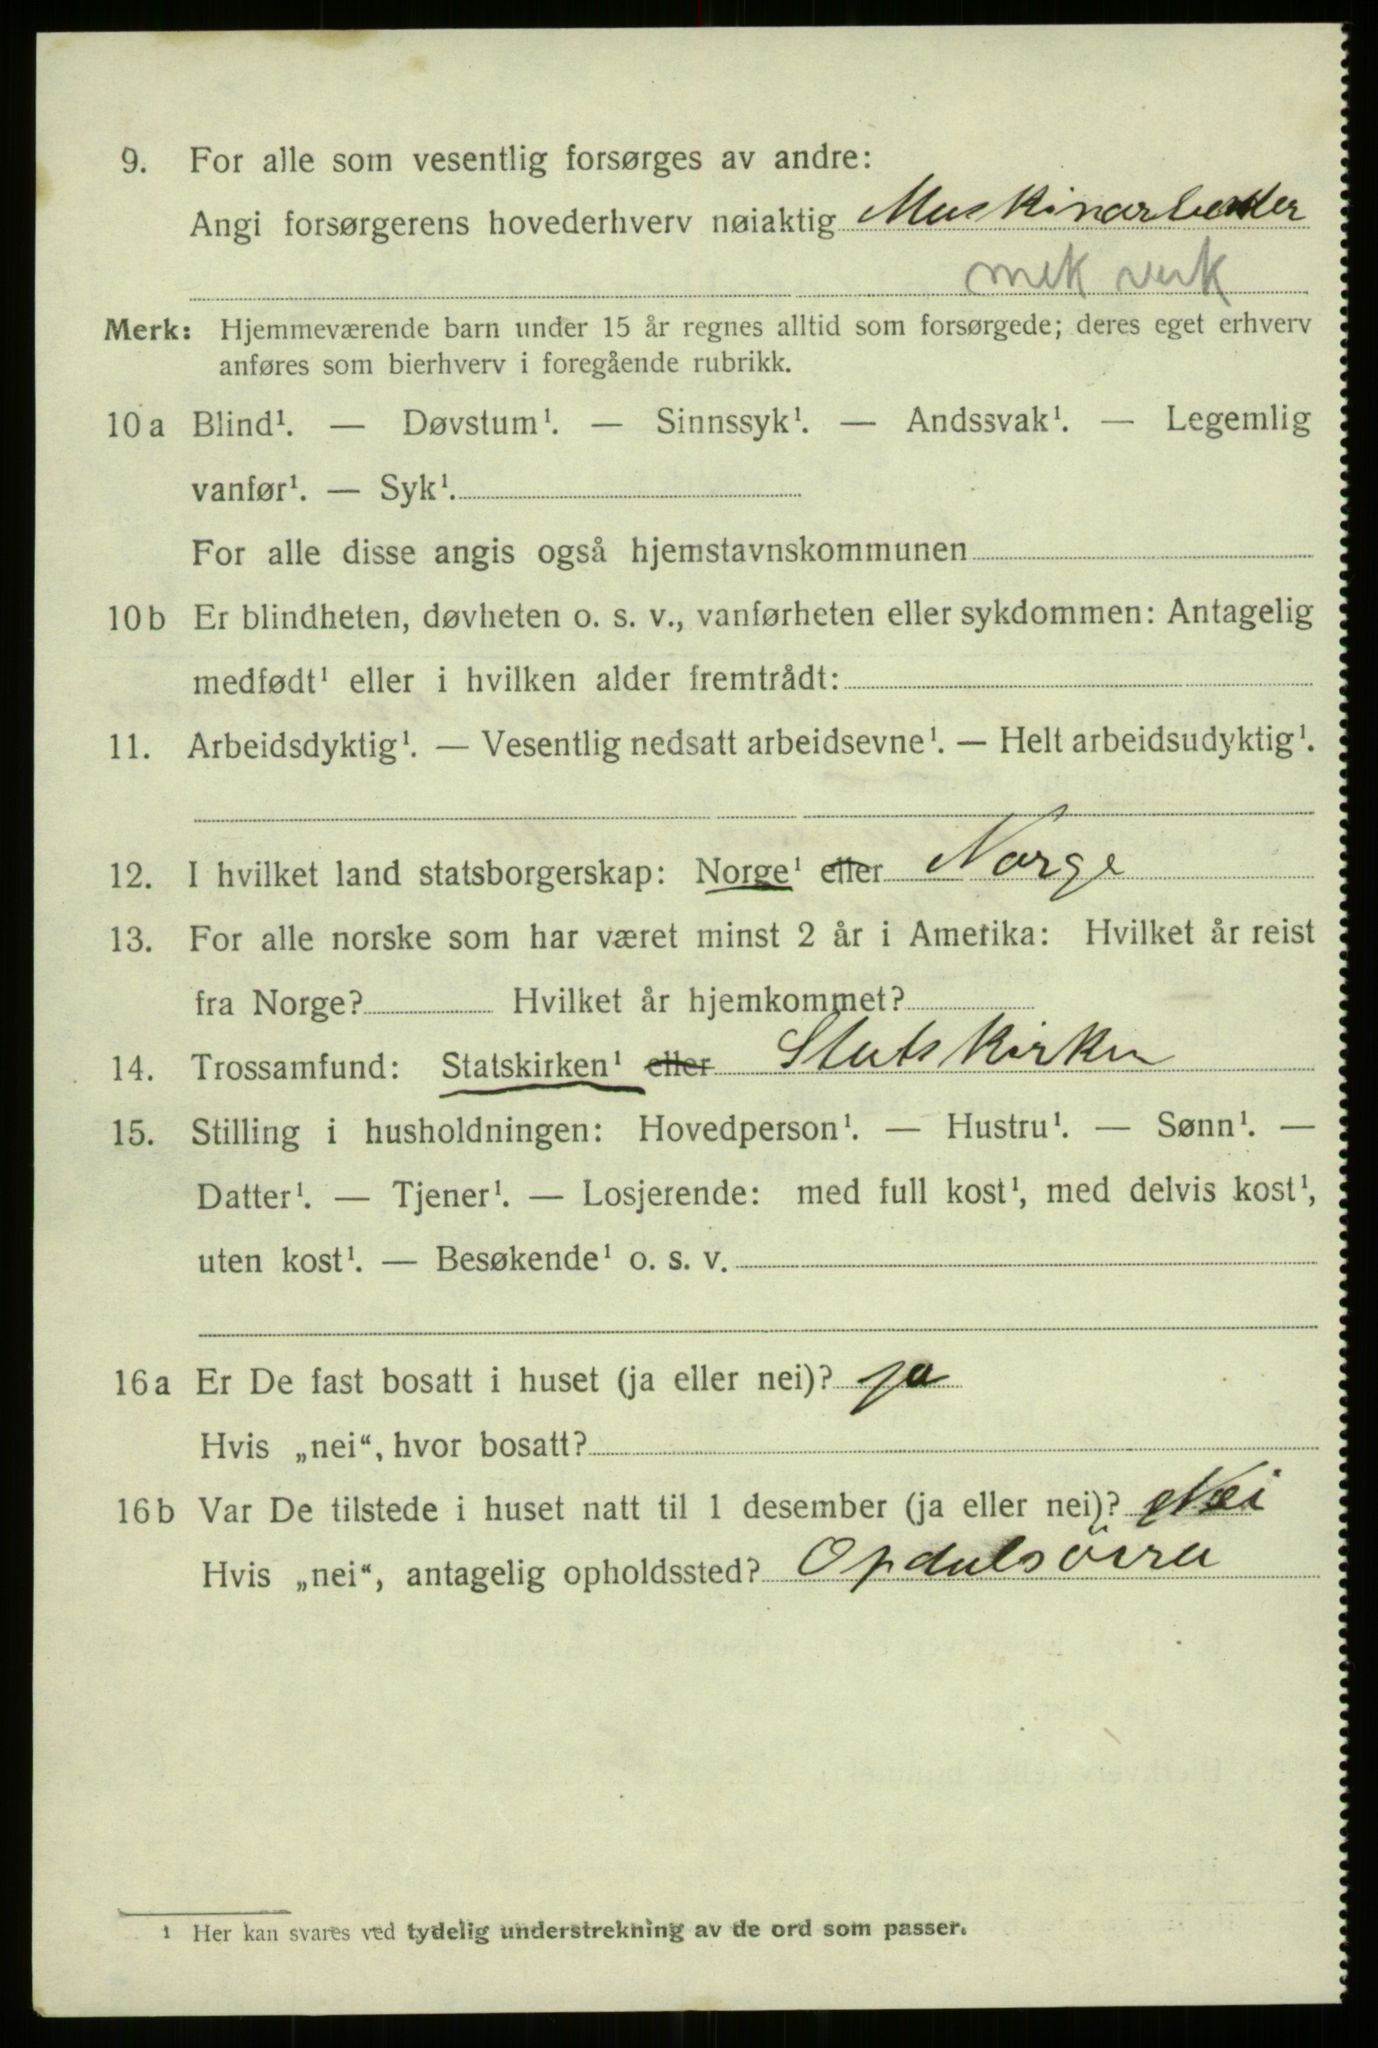 9. For alle som vesentlig forsørges av andre:
Angi forsørgerens hovederhverv nøiaktig Maskinarbeider
mek verk
Merk: Hjemmeværende barn under 15 år regnes alltid som forsørgede; deres eget erhverv
anføres som bierhverv i foregående rubrikk.
10 a Blind¹. — Døvstum¹. — Sinnssyk¹. — Andssvak¹. — Legemlig
vanfør¹. — Syk¹.
For alle disse angis også hjemstavnskommunen
10 b Er blindheten, døvheten o. s. v., vanførheten eller sykdommen: Antagelig
medfødt¹ eller i hvilken alder fremtrådt:
11. Arbeidsdyktig¹. — Vesentlig nedsatt arbeidsevne¹. — Helt arbeidsudyktig¹.
12. I hvilket land statsborgerskap: Norge¹ eller Norge
13. For alle norske som har været minst 2 år i Amerika: Hvilket år reist
fra Norge? Hvilket år hjemkommet?
14. Trossamfund: Statskirken¹ eller Statskirken
15. Stilling i husholdningen: Hovedperson¹. — Hustru¹. — Sønn¹. —
Datter¹. — Tjener¹. — Losjerende: med full kost¹, med delvis kost¹,
uten kost¹. — Besøkende¹ o. s. v.
16 a Er De fast bosatt i huset (ja eller nei)? ja
Hvis „nei“, hvor bosatt?
16 b Var De tilstede i huset natt til 1 desember (ja eller nei)? Nei
Hvis „nei“, antagelig opholdssted? Opdalsöira
1 Her kan svares ved tydelig understrekning av de ord som passer.